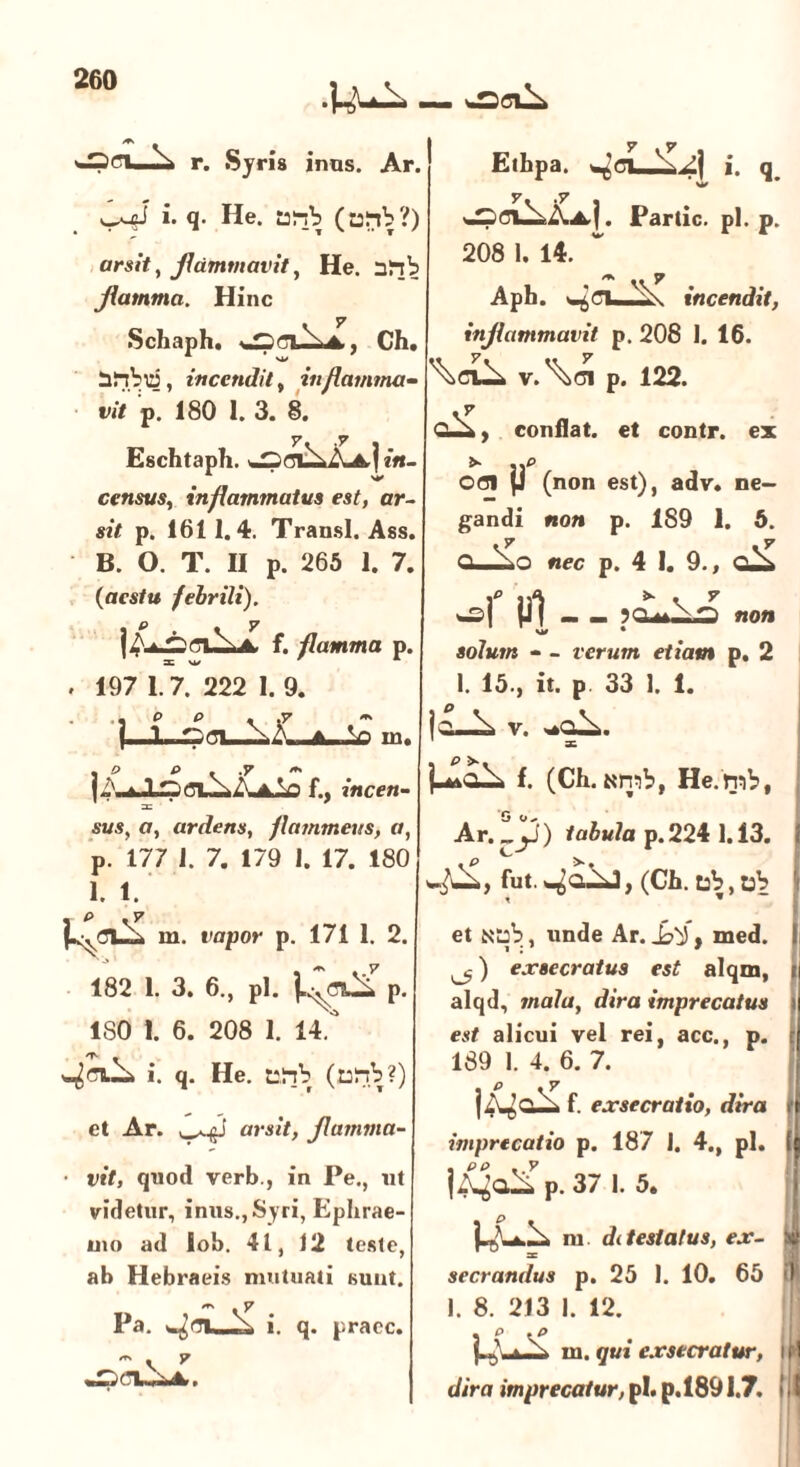 260
ܠܗܒ — ܠܝܛܐ.
ܠܗܒ r. Syris inus. Ar.
لهب i. q. He. להט (להט?)
arsit, flammavit, He. להב
flamma. Hinc
Schaph. ܫܠܗܒ, Ch.
שלהב, incendit, inflamma-
vit p. 180 l. 3. 8.
Eschtaph. ܐܫܬܠܗܒ in-
census, inflammatus est, ar-
sit p. 161 l. 4. Transl. Ass.
B. O. T. II p. 265 l. 7.
(aestu febrili).
ܫܠܗܒܝܬܐ f. flamma p.
197 l. 7. 222 l. 9.
ܡܫܬܠܗܒܢܐ m.
ܡܫܬܠܗܒܢܝܬܐ f., incen-
sus, a, ardens, flammeus, a,
p. 177 l. 7. 179 l. 17. 180
l. 1.
ܠܗܓܐ m. vapor p. 171 l. 2.
182 l. 3. 6., pl. ܠܗܓ̈ܐ p.
180 l. 6. 208 l. 14.
ܠܗܛ i. q. He. להט (להט?)
et Ar. لهب arsit, flamma-
vit, quod verb., in Pe., ut
videtur, inus., Syri, Ephrae-
mo ad Iob. 41, 12 teste,
ab Hebraeis mutuati sunt.
Pa. ܠܗܛ i. q. praec.
ܫܠܗܒ.
Ethpa. ܐܬܠܗܛ i. q.
ܐܫܬܠܗܒ. Partic. pl. p.
208 l. 14.
Aph. ܐܠܗܛ incendit,
inflammavit p. 208 l. 16.
ܠܗܠ v. ܗܠ p. 122.
ܠܘ, conflat. et contr. ex
ܠܐ ܗܘܐ (non est), adv. ne-
gandi non p. 189 l. 5.
ܘܠܘ nec p. 4 l. 9., ܠܘ
ܒܠܚܘܕ _ _ ܐܠܐ ܐܦ non
solum - - verum etiam p. 2
l. 15., it. p. 33 l. 1.
ܠܘܐ v. ܠܘܝ.
ܠܘܚܐ f. (Ch. לוחא, He. לוח,
Ar. لوح) tabula p. 224 l. 13.
ܠܛ, fut. ܢܠܘܛ, (Ch. לט, לט
et לטא, unde Ar. لاط, med.
ى) exsecratus est alqm,
alqd, mala, dira imprecatus
est alicui vel rei, acc., p.
189 l. 4. 6. 7.
ܠܘܛܬܐ f. exsecratio, dira
imprecatio p. 187 l. 4., pl.
ܠܘܛ̈ܬܐ p. 37 l. 5.
ܠܝܛܐ m. detestatus, ex-
secrandus p. 25 l. 10. 65
l. 8. 213 l. 12.
ܠܝܛܐ m. qui exsecratur,
dira imprecatur, pl. p. 189 l. 7.